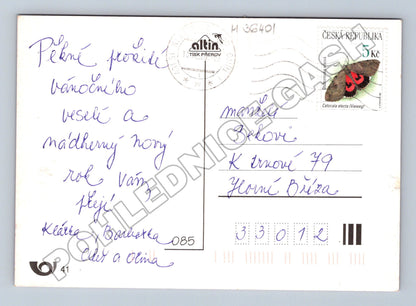 Pěkné prožití
vánočního
veselé a
nádherný nový
rok Vám
přejí
Klárka Barunka
a Olina
085
41
altin
TISK PŘEROV
M 36401
ČESKÁ REPUBLIKA
5 Kč
Catocala electa (Vieweg)
manželé
K trnové 79
Horní Bříza
33012
POHLEDNICE-GASH